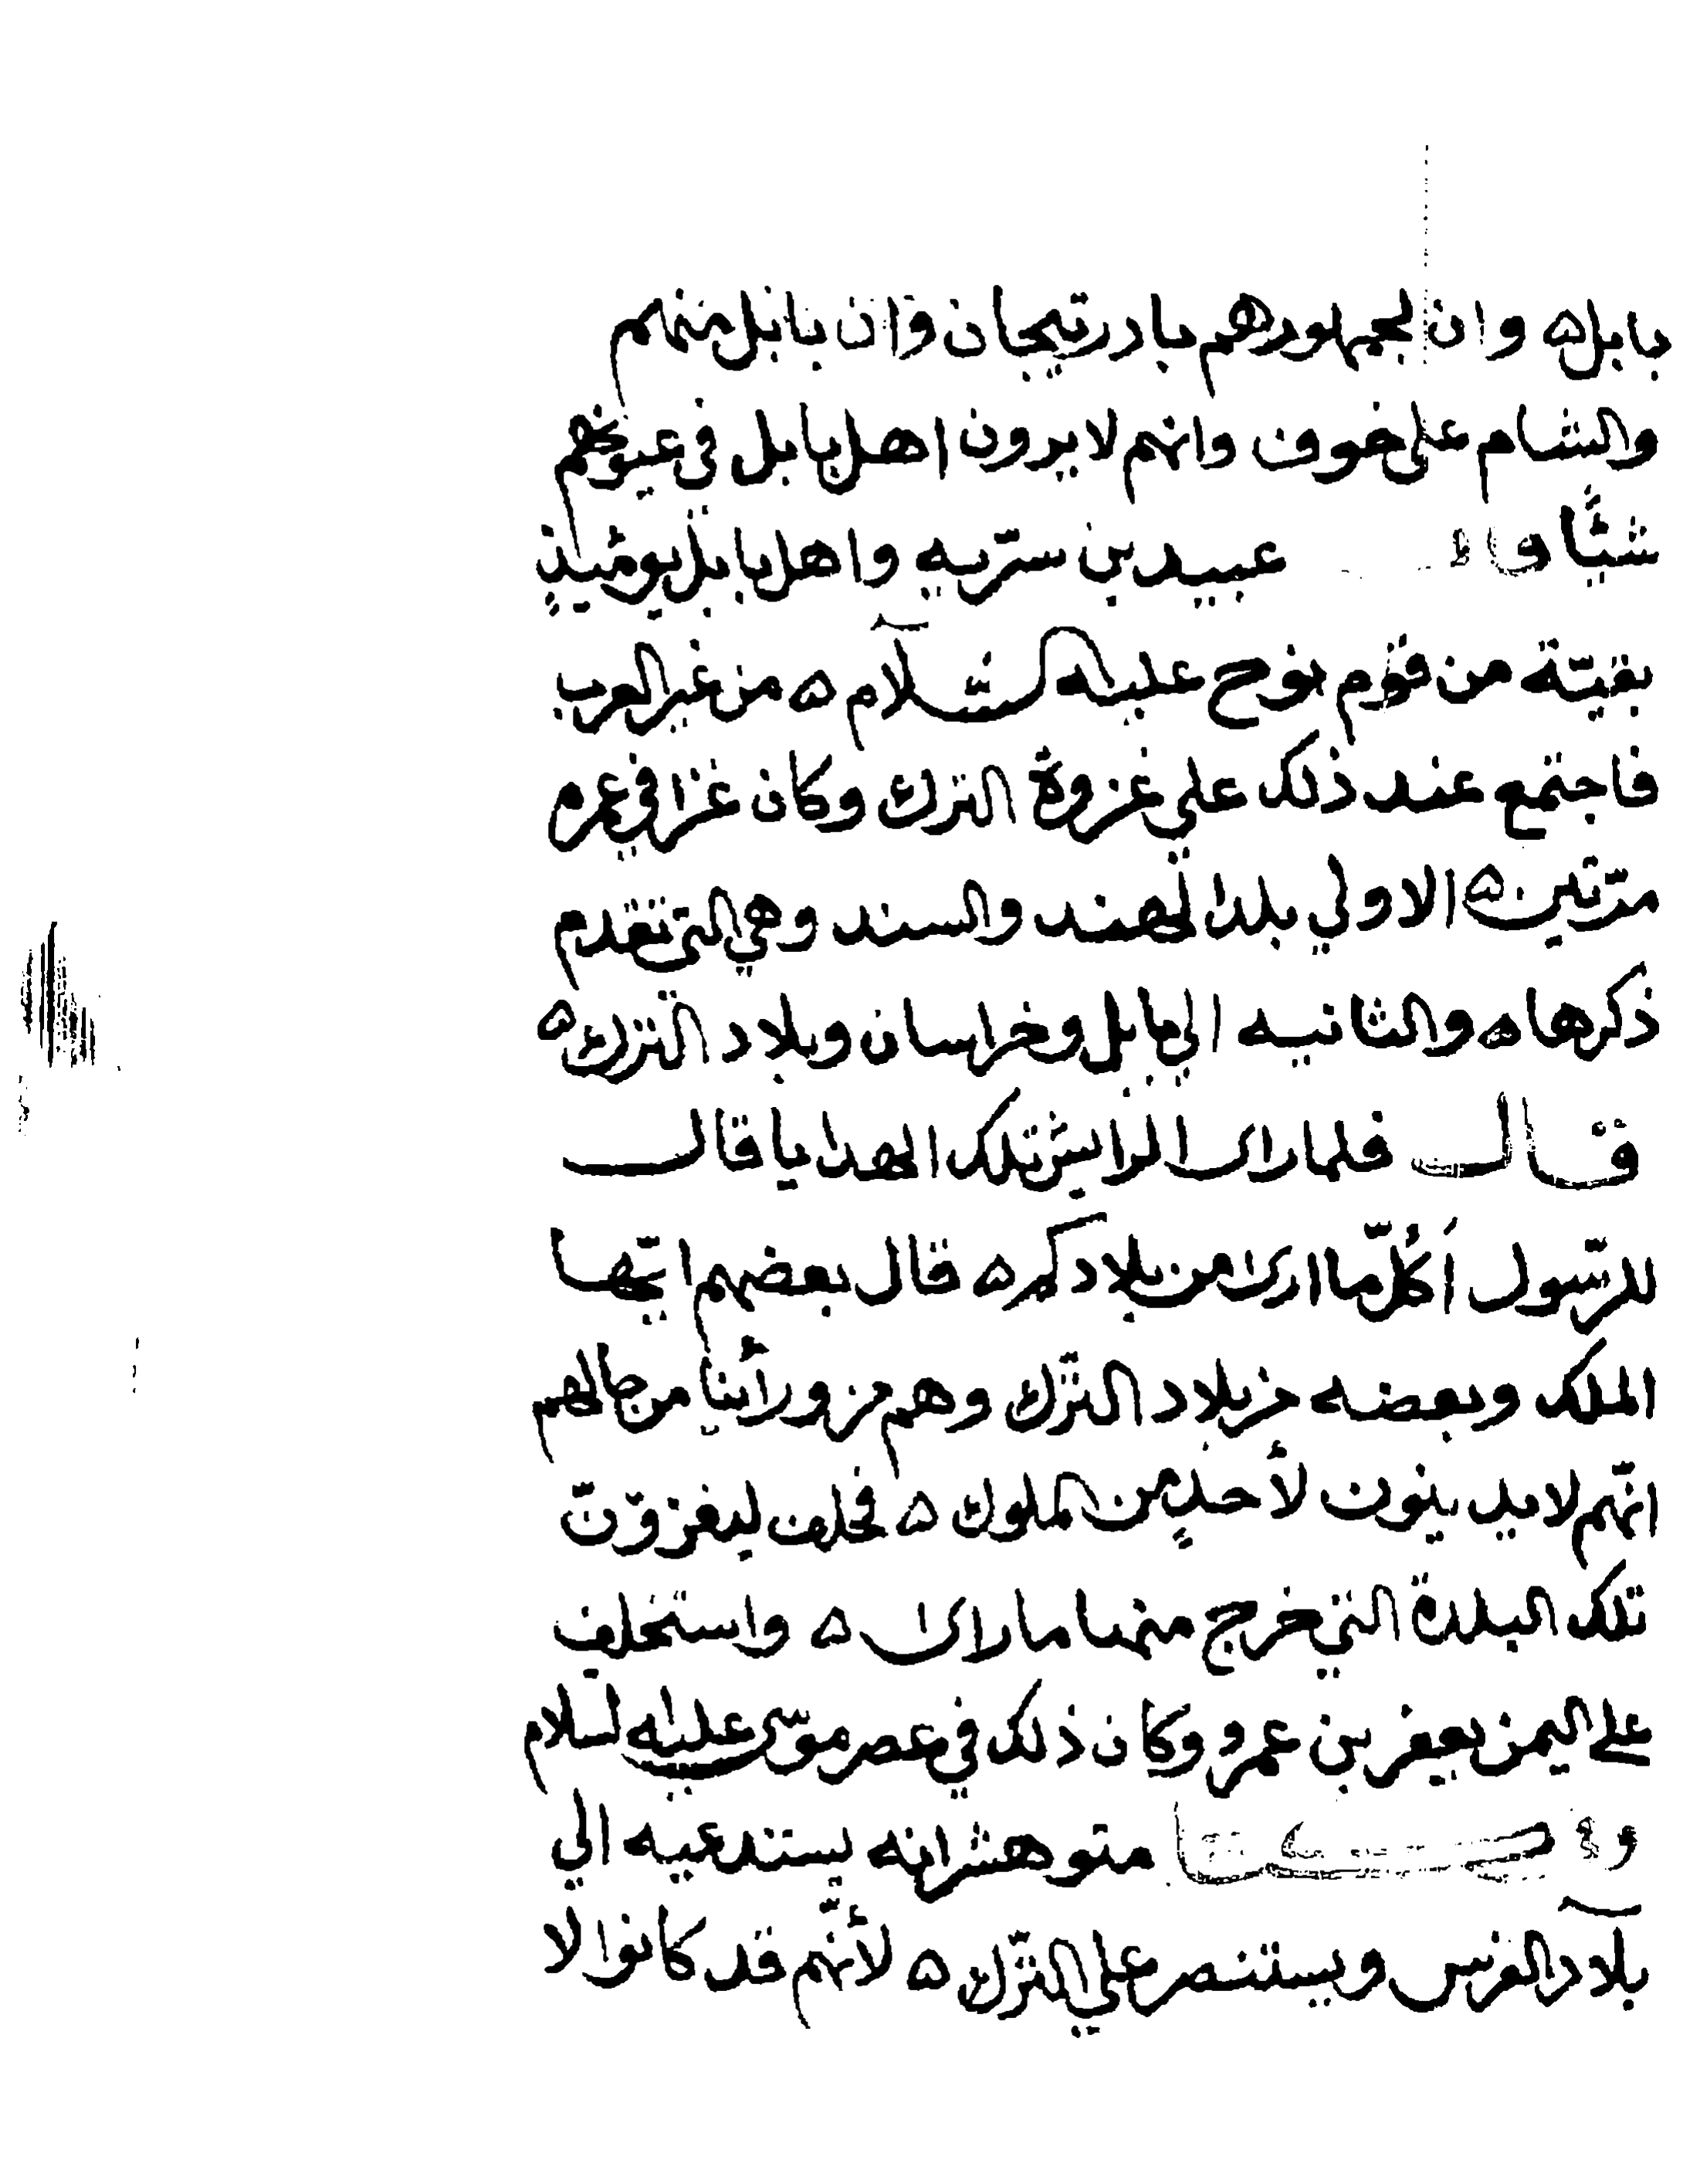 بابل ۵ وان لجمهورهم بادرتيجان وان بابل منهم
والشام على خوف وانهم لا يرون اهل بابل في عيونهم
شئًا عبيد بن ستريه واهل بابل يومئيذٍ
بقيّة من قوم نوح عليه السلآم ۵ من غير العرب
فاجتمع عند ذلك علي غزوة الترك وكان غزا في عمره
مرّتين ۵ الاولي بلد الهند والسند وهي التي تقدم
ذكرها ۵ والثانيه الي بابل وخراسان وبلاد الترك ۵
قال فلما راى الرايش تلك الهدايا قال
للرّسول اَكُلّ ما ارى من بلادكم ۵ قال بعضهم ايّها
الملك وبعضه من بلاد الترك وهم من ورأينا من حالهم
انّهم لا يدينون لأحدٍ من الملوك ۵ فحلف ليغزوّنّ
تلك البلدة التي خرج منها ما راى ۵ واستخلف
على اليمن يعفر بن عمرو وكان ذلك في عصر موسّى عليه السلام
متوهشرانه يستدعيه الي
بلآد الفرس ويستنصر علي الترّك ۵ لأنّهم قد كانوا لا